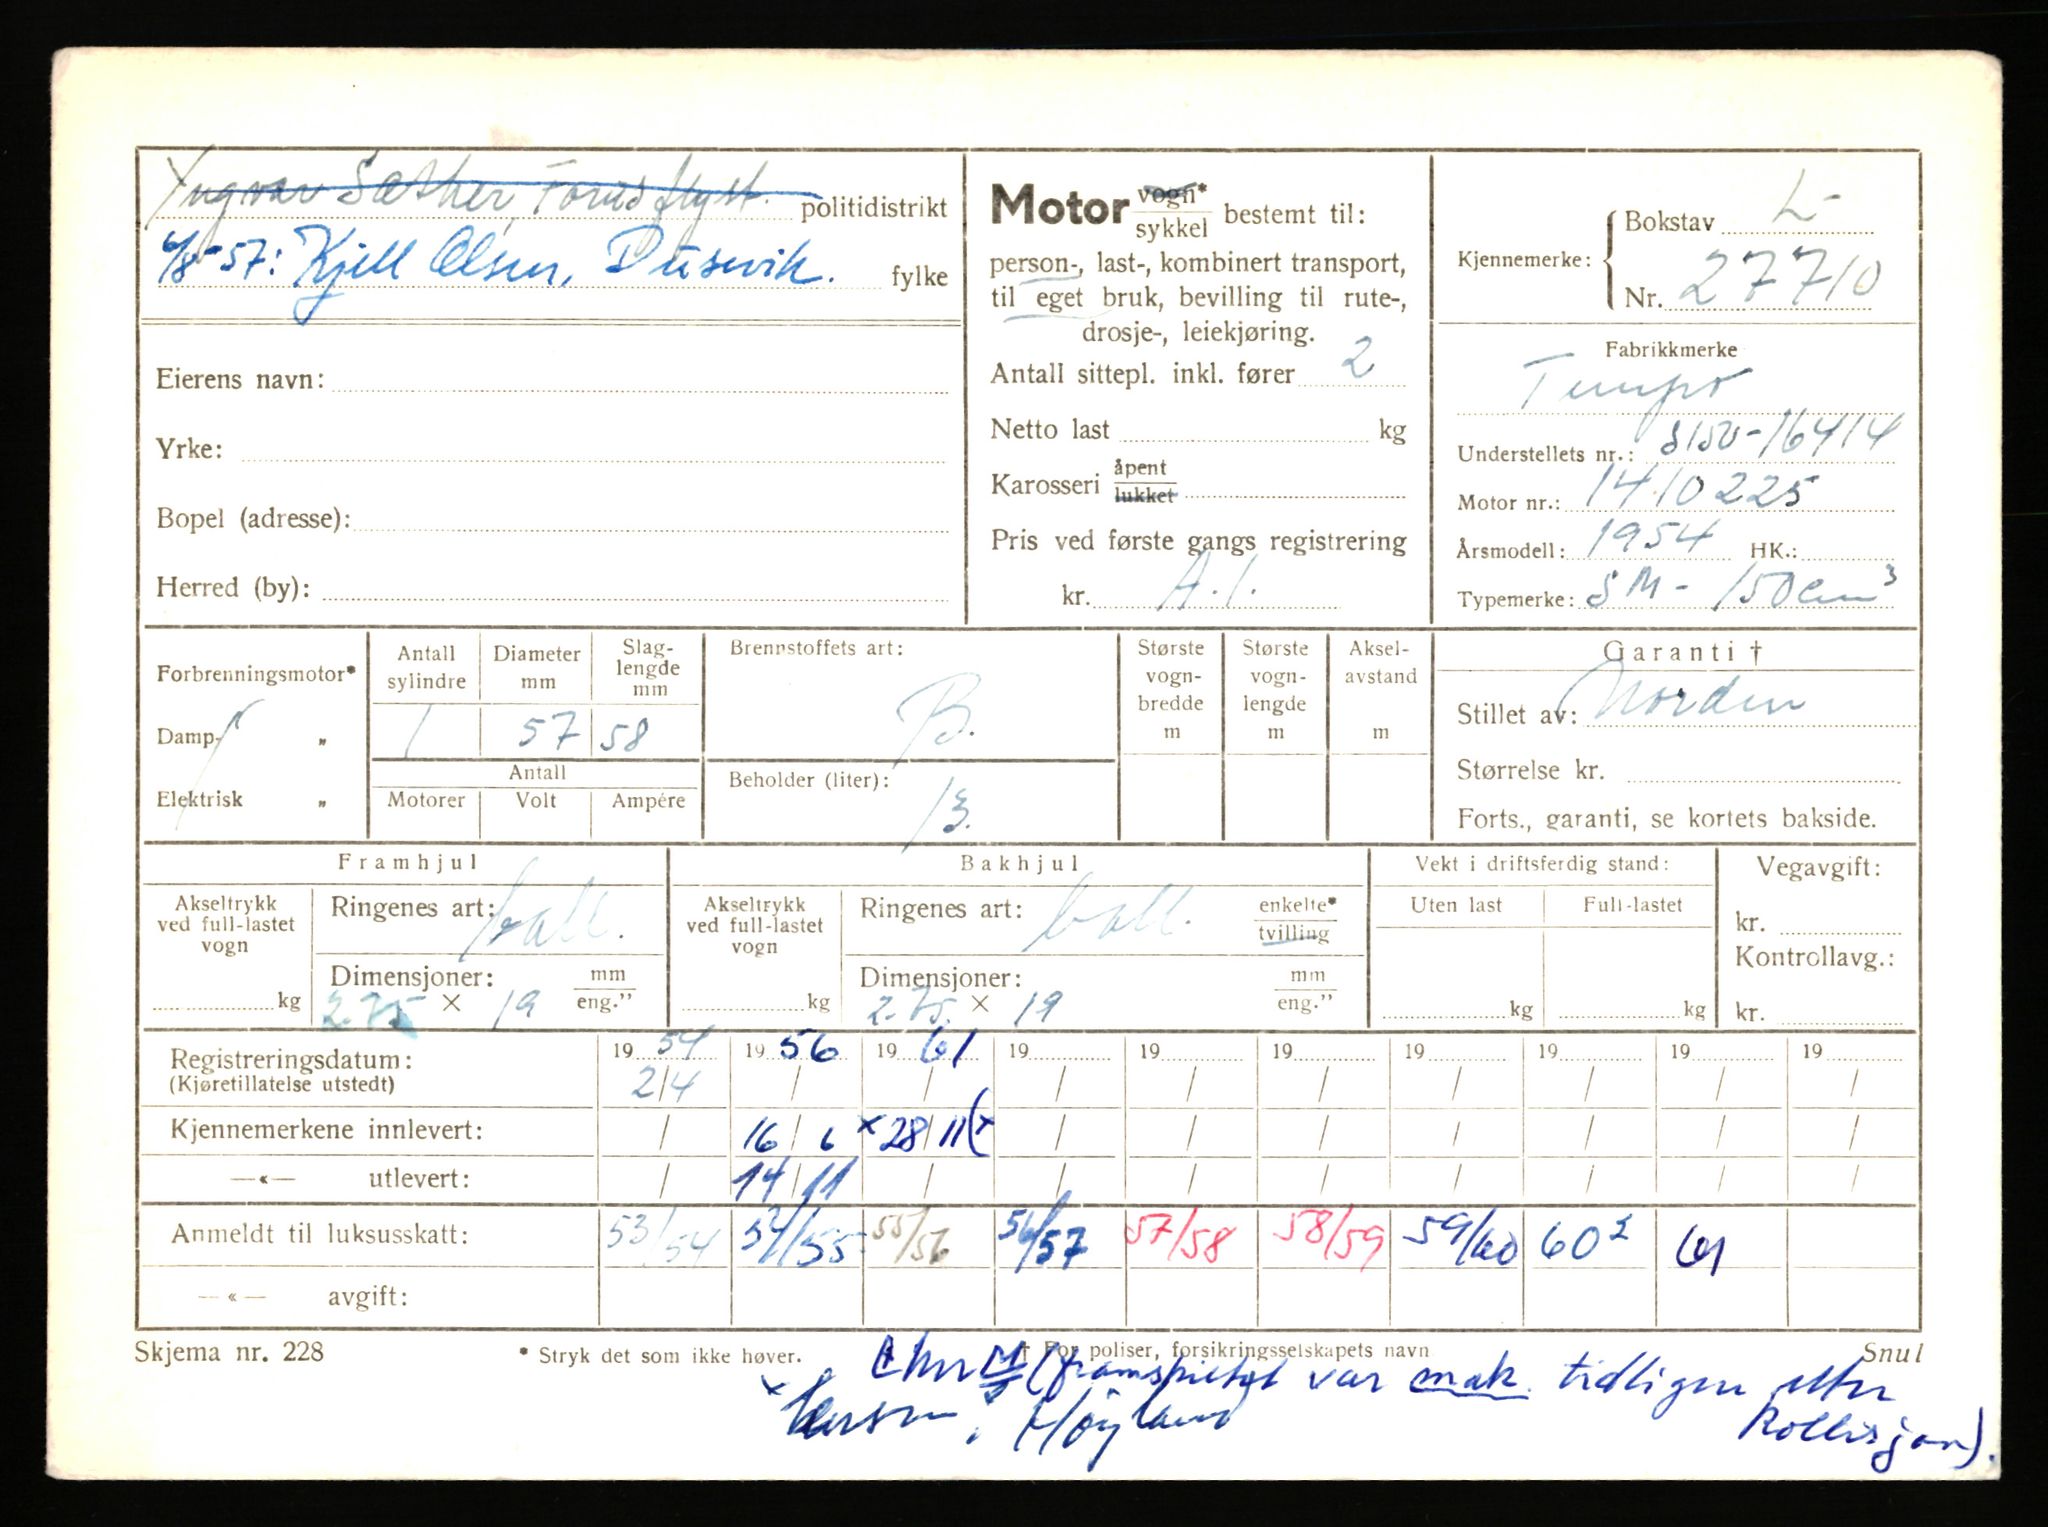 Yngvar Sæther, Forus flyst. politidistrikt
6/8-57: Kjell Olsen, Dusevik. fylke
Eierens navn:
Yrke:
Bopel (adresse):
Herred (by):
Motor vogn* sykkel bestemt til:
person-, last-, kombinert transport,
til eget bruk, bevilling til rute-,
drosje-, leiekjøring.
Antall sittepl. inkl. fører 2
Netto last kg
Karosseri åpent lukket
Pris ved første gangs registrering
kr. A.1.
Kjennemerke: Bokstav L-
Nr. 27710
Fabrikkmerke
Tempo
Understellets nr.: S150-16414
Motor nr.: 1410225
Årsmodell: 1954 HK.:
Typemerke: SM - 150 cm³
Forbrenningsmotor*
Damp- „
Elektrisk „
Antall sylindre
Diameter mm
Slag-lengde mm
1 57 58
Antall
Motorer Volt Ampére
Brennstoffets art:
B.
Beholder (liter):
13.
Største vogn-bredde m
Største vogn-lengde m
Aksel-avstand m
Garanti †
Stillet av: Norden
Størrelse kr.
Forts., garanti, se kortets bakside.
Framhjul
Akseltrykk ved full-lastet vogn
kg
Ringenes art: ball.
Dimensjoner: mm eng."
2.75 × 19
Bakhjul
Akseltrykk ved full-lastet vogn
kg
Ringenes art: ball. enkelte* tvilling
Dimensjoner: mm eng."
2.75. × 19
Vekt i driftsferdig stand:
Uten last Full-lastet
kg kg
Vegavgift:
kr.
Kontrollavg.:
kr.
Registreringsdatum: 19 54 19 56 19 61 19 19 19 19 19 19 19
(Kjøretillatelse utstedt) 2/4 / / / / / / / / /
Kjennemerkene innlevert: / 16/6 x 28/11 (x / / / / / / /
—«— utlevert: / 14/11 / / / / / / / /
Anmeldt til luksusskatt: 53/54 54/55 55/56 56/57 57/58 58/59 59/60 60² 61
—«— avgift:
Skjema nr. 228 * Stryk det som ikke høver. † For poliser, forsikringsselskapets navn Snul
(framskiltet var mak. tidligere etter
x Høyland kollisjon).